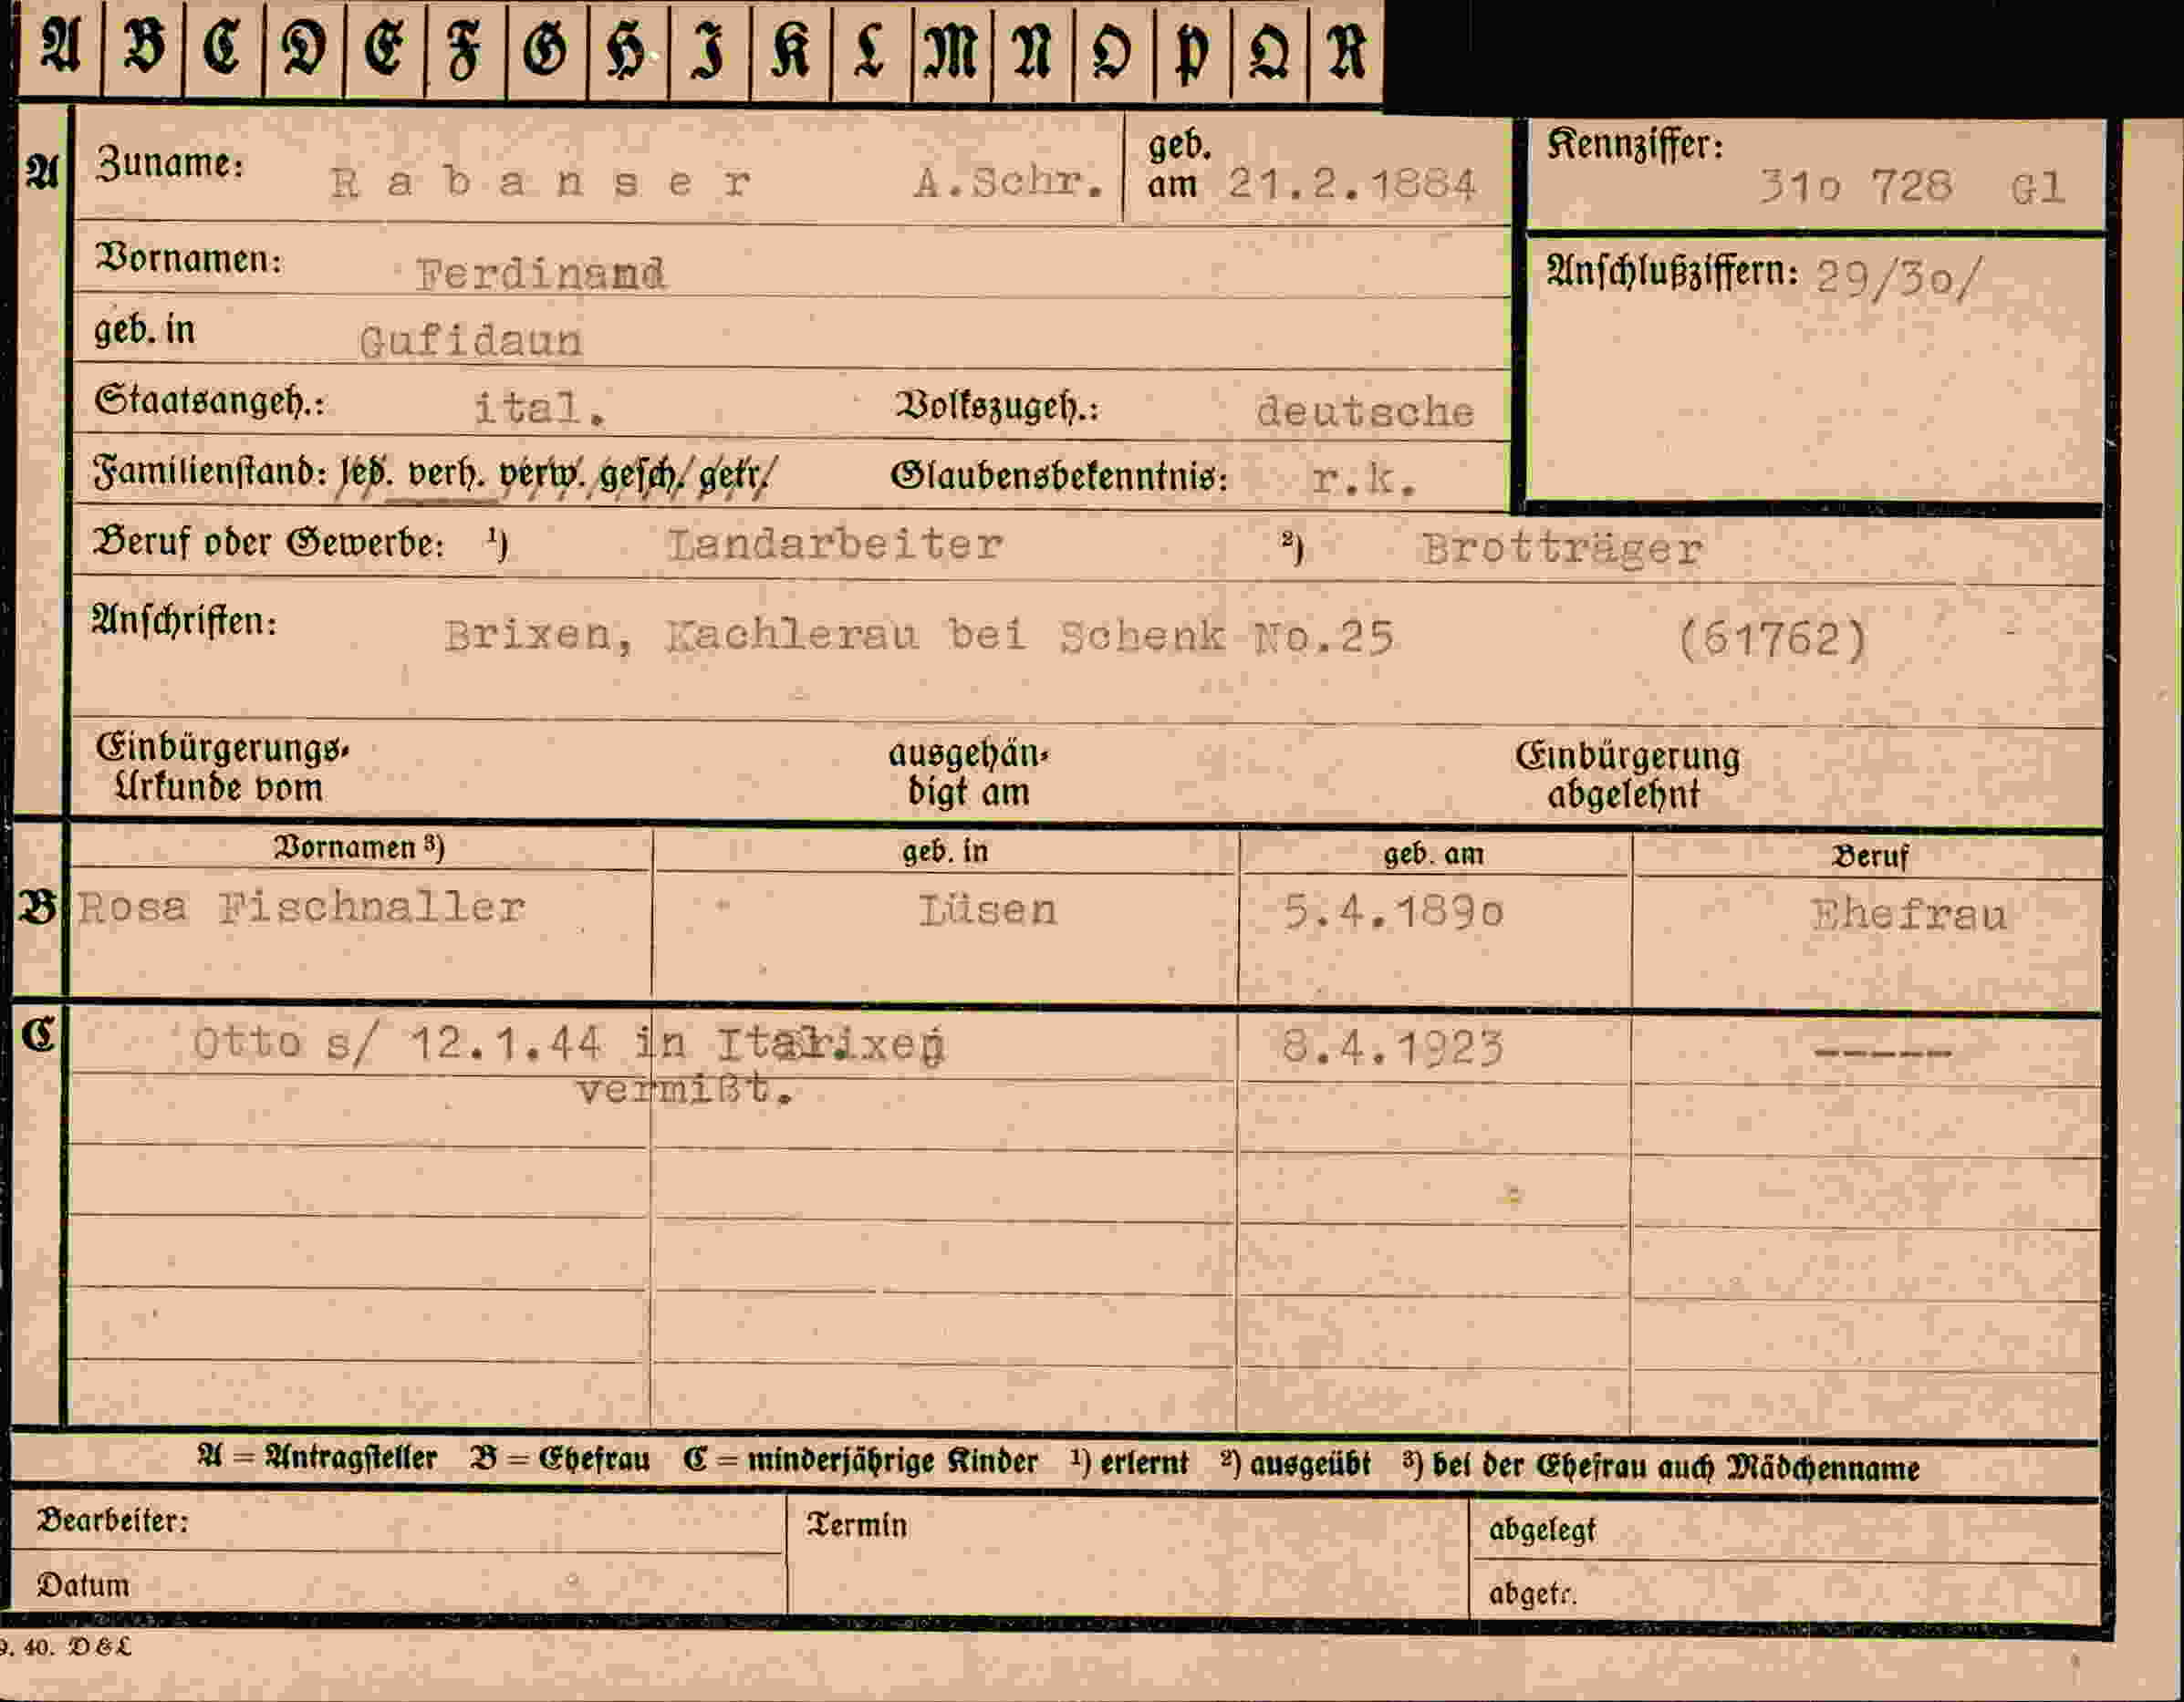 A B C D E F G H I K L M N O P Q R
A Zuname: Rabanser A.Schr. geb. am 21.2.1884
Kennziffer: 31o 728 Gl
Vornamen: Ferdinand
Anschlußziffern: 29/3o/
geb. in Gufidaun
Staatsangeh.: ital. Volkszugeh.: deutsche
Familienstand: led. verh. verw. gesch. getr. Glaubensbekenntnis: r.k.
Beruf oder Gewerbe: 1) Landarbeiter 2) Brotträger
Anschriften: Brixen, Kachlerau bei Schenk No.25 (61762)
Einbürgerungs-
Urkunde vom
ausgehän-
digt am
Einbürgerung
abgelehnt
Vornamen 3) geb. in geb. am Beruf
B Rosa Fischnaller Lüsen 5.4.189o Ehefrau
C Otto s/ 12.1.44 in 8.4.1923 -----
vermißt.
A = Antragsteller B = Ehefrau C = minderjährige Kinder 1) erlernt 2) ausgeübt 3) bei der Ehefrau auch Mädchenname
Bearbeiter: Termin abgelegt
Datum abgetr.
9. 40. D&L